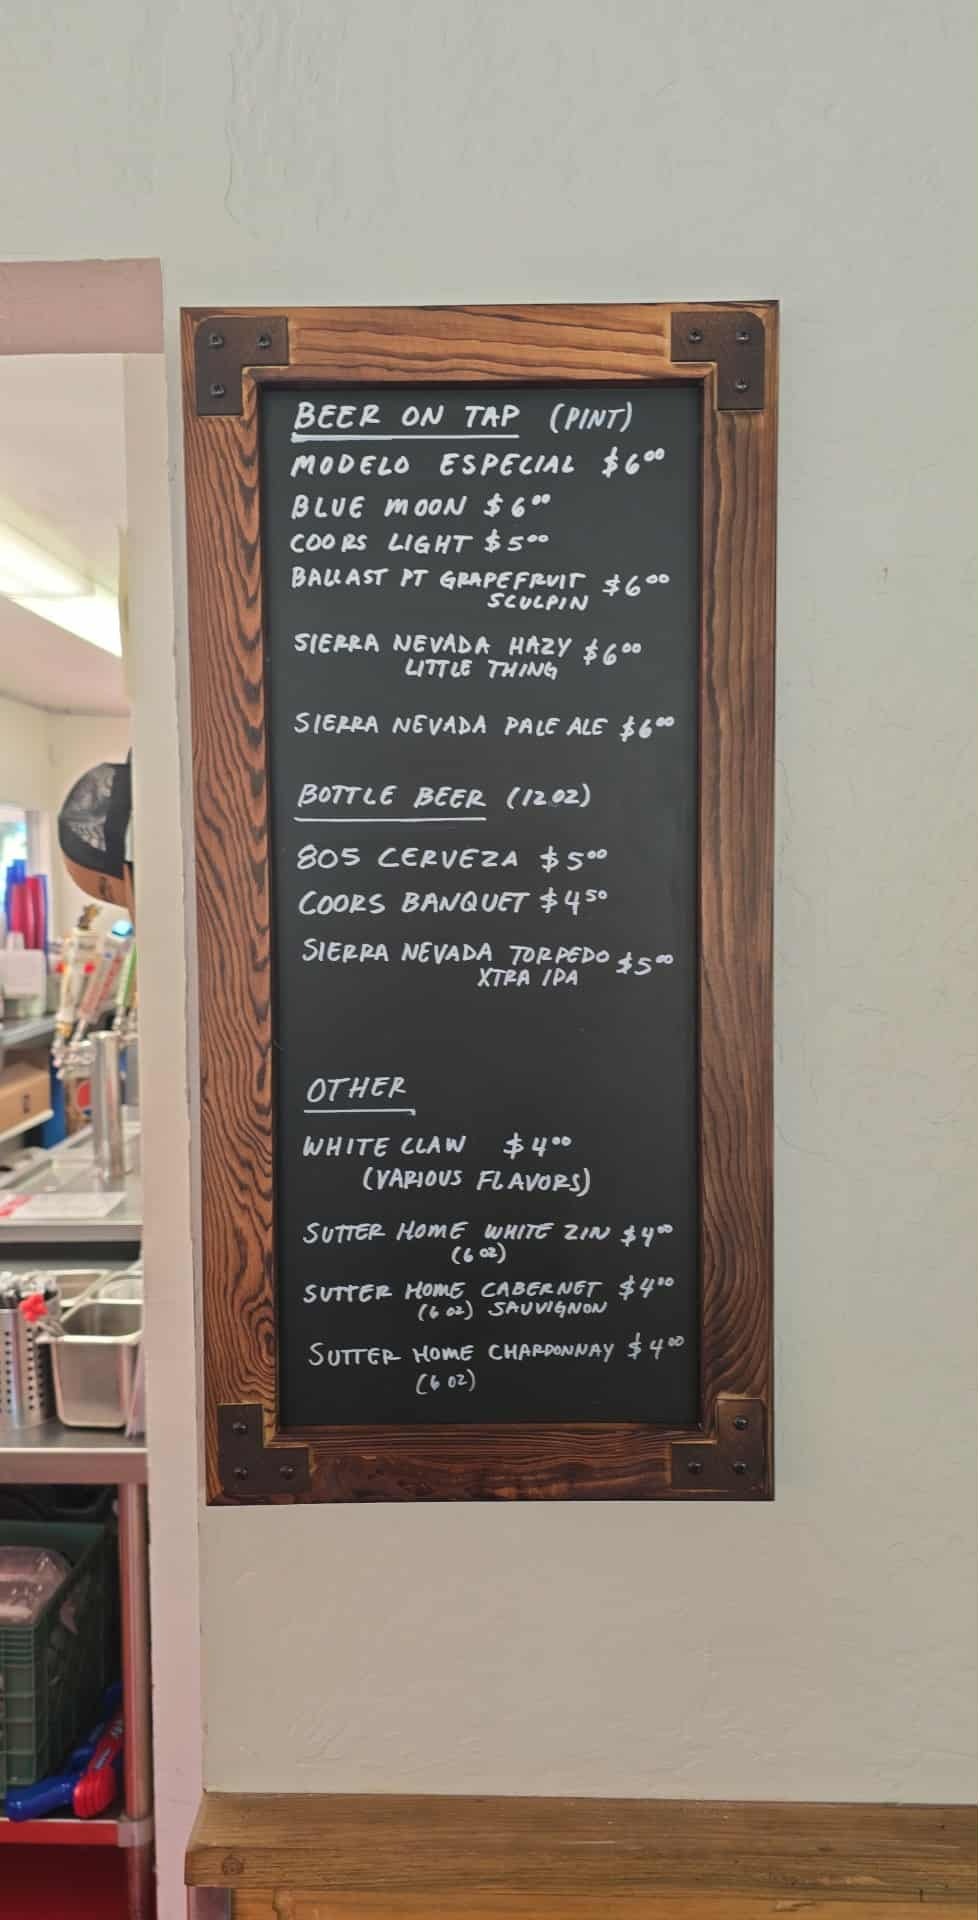 BEER ON TAP (PINT)
MODELO ESPECIAL $6.00
BLUE MOON $6.00
COORS LIGHT $5.00
BALLAST PT GRAPEFRUIT $6.00
SCULPIN
SIERRA NEVADA HAZY $6.00
LITTLE THING
SIERRA NEVADA PALE ALE $6.00
BOTTLE BEER (12 OZ)
805 CERVEZA $5.00
COORS BANQUET $4.50
SIERRA NEVADA TORPEDO $5.00
XTRA IPA
OTHER
WHITE CLAW $4.00
(VARIOUS FLAVORS)
SUTTER HOME WHITE ZIN $4.00
(6 OZ)
SUTTER HOME CABERNET $4.00
(6 OZ) SAUVIGNON
SUTTER HOME CHARDONNAY $4.00
(6 OZ)